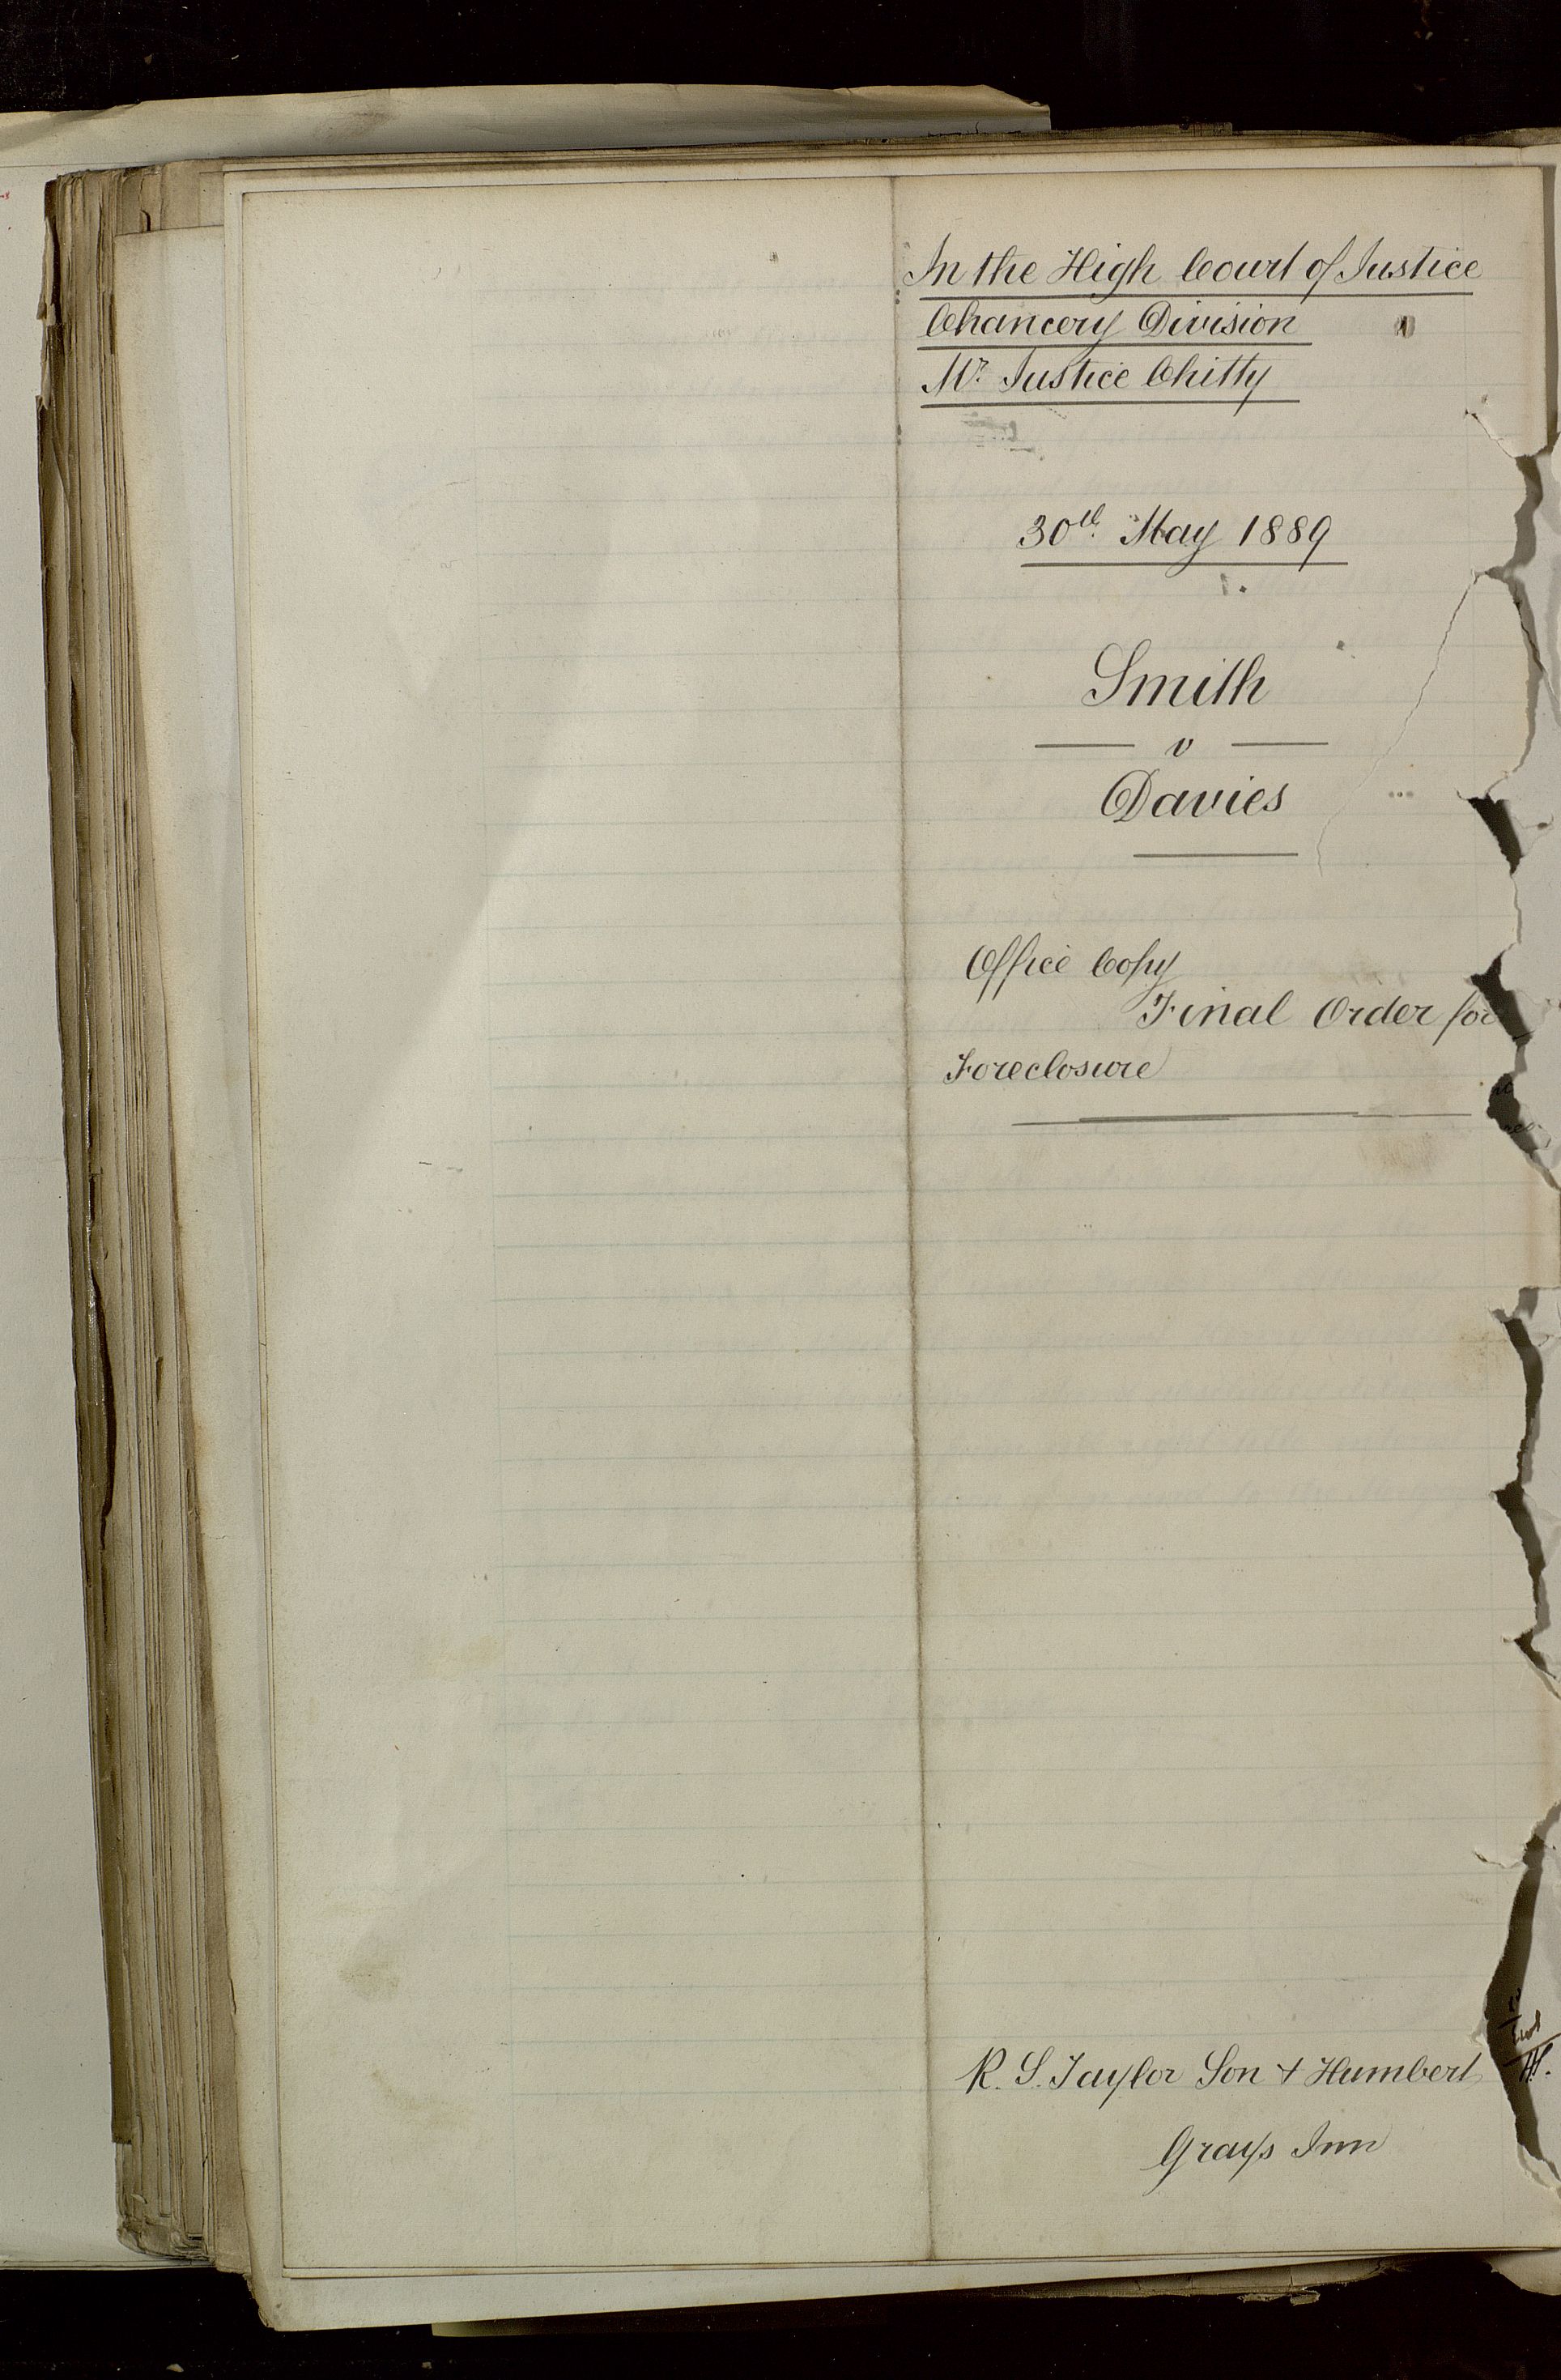 In the High Court of Justice
Chancery Division
Mr. Justice Chitty
30th. May 1889
Smith
v
Davies
Office Copy
Final Order for
Foreclosure
R. S. Taylor Son & Humbert
Grays Inn